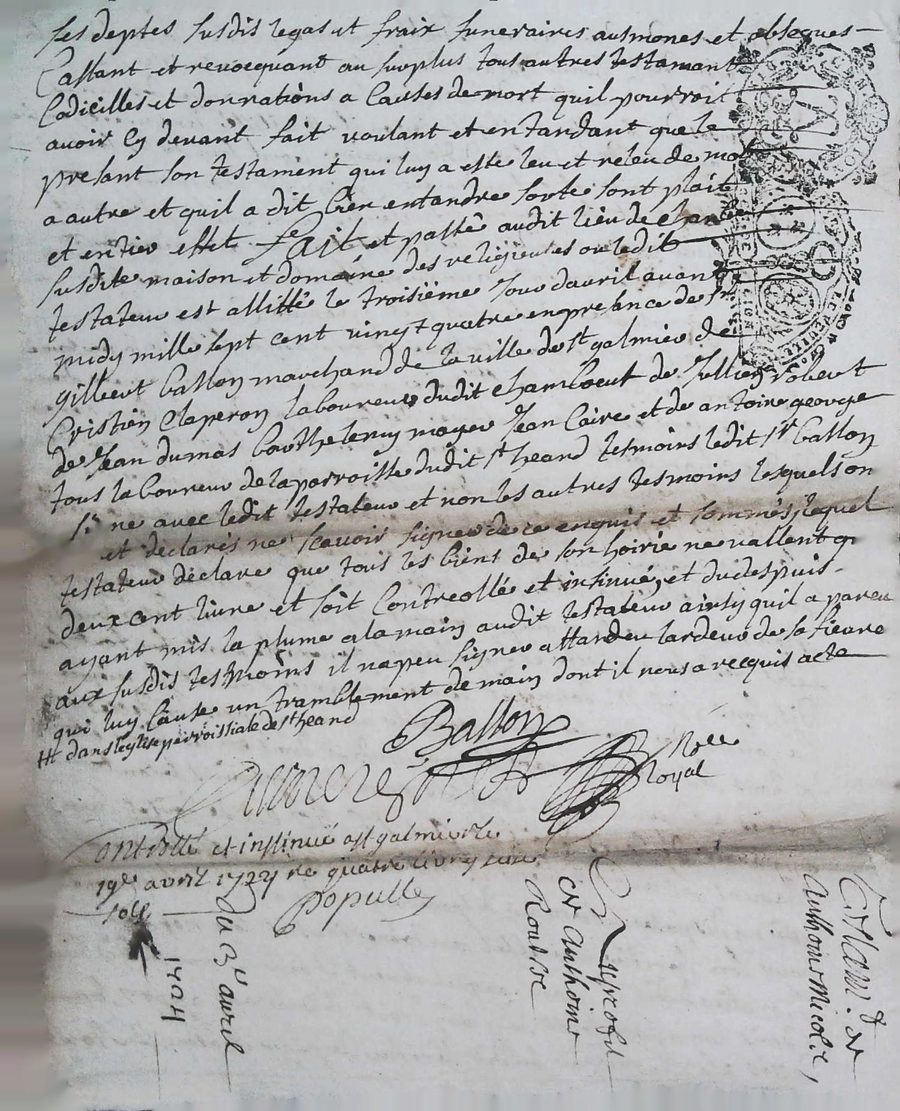 ses deptes susdis legas et fraix funeraires ausmones et obseques
Cassant et revocquant au surplus tous autres testamant
Codicilles et donnations a Causes de mort quil pourroit
avoir Cy devant fait voulant et entandant que le
presant son testament qui luy a esté leu et releu de mot
a autre et quil a dit bien entandre sorte sont plait
et entier effet fait et passé audit lieu de
susdite maison et domaine des religieuses ou ledit
testateur est allitté le troisiëme Jour davril avant
midy mille sept cent vingt quatre en presance de sr
gilbert Ballon marchand de la ville de st galmier de
Cristien Claperon laboureur dudit chamboeut de Jullien robert
de Jean dumas barthelemy moyer Jean Caire et de antoine george
tous laboureur de la parroisse dudit st heand tesmoins ledit sr ballon
si ne avec ledit testateur et non les autres tesmoins lesquels on
et declarés ne scavoir signer de ce enquis et sommés lequel
testateur declare que tous les biens de son hoirie ne vallent q
deux cent livre et soit Controllé et insinué, et du despuis
ayant mis la plume a la main audit testateur ainsy quil a pareu
aux susdis tesmoins il na peu signer attandeu lardeur de sa fievre
qui luy Cause un tramblement de main dont il nous a recquis acte
dans leglise perroissiale de st heand
Ballon
Nore Royal
Controllé et insinué a st galmier le
19e avril 1724 re quatre livres
sols
populle
Du 3e avril
1724
Anthoine